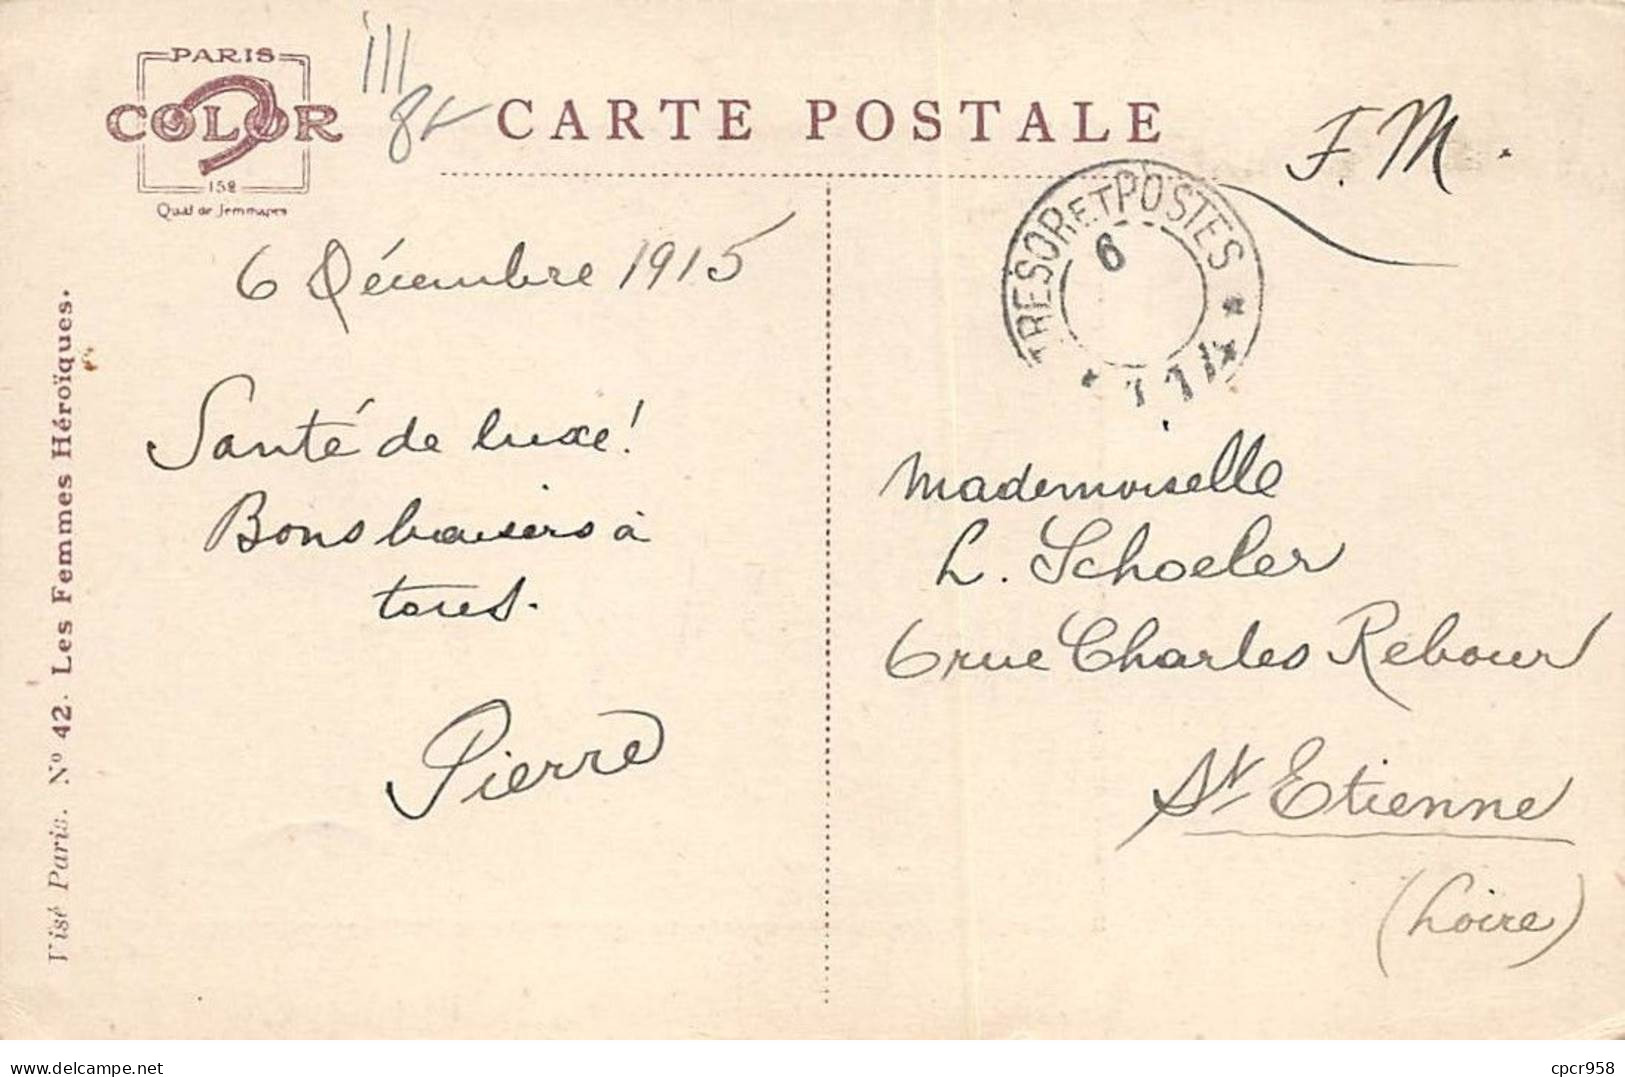 PARIS
COLOR
152
Quai de Jemmapes
CARTE POSTALE
F. M.
TRESOR ET POSTES
6
6 Décembre 1915
Santé de luxe!
Bons baisers à
tous.
Pierre
Mademoiselle
L. Schoeler
6 rue Charles Rebour
St Etienne
(Loire)
Visé Paris. Nº 42. Les Femmes Héroïques.
cpcr958